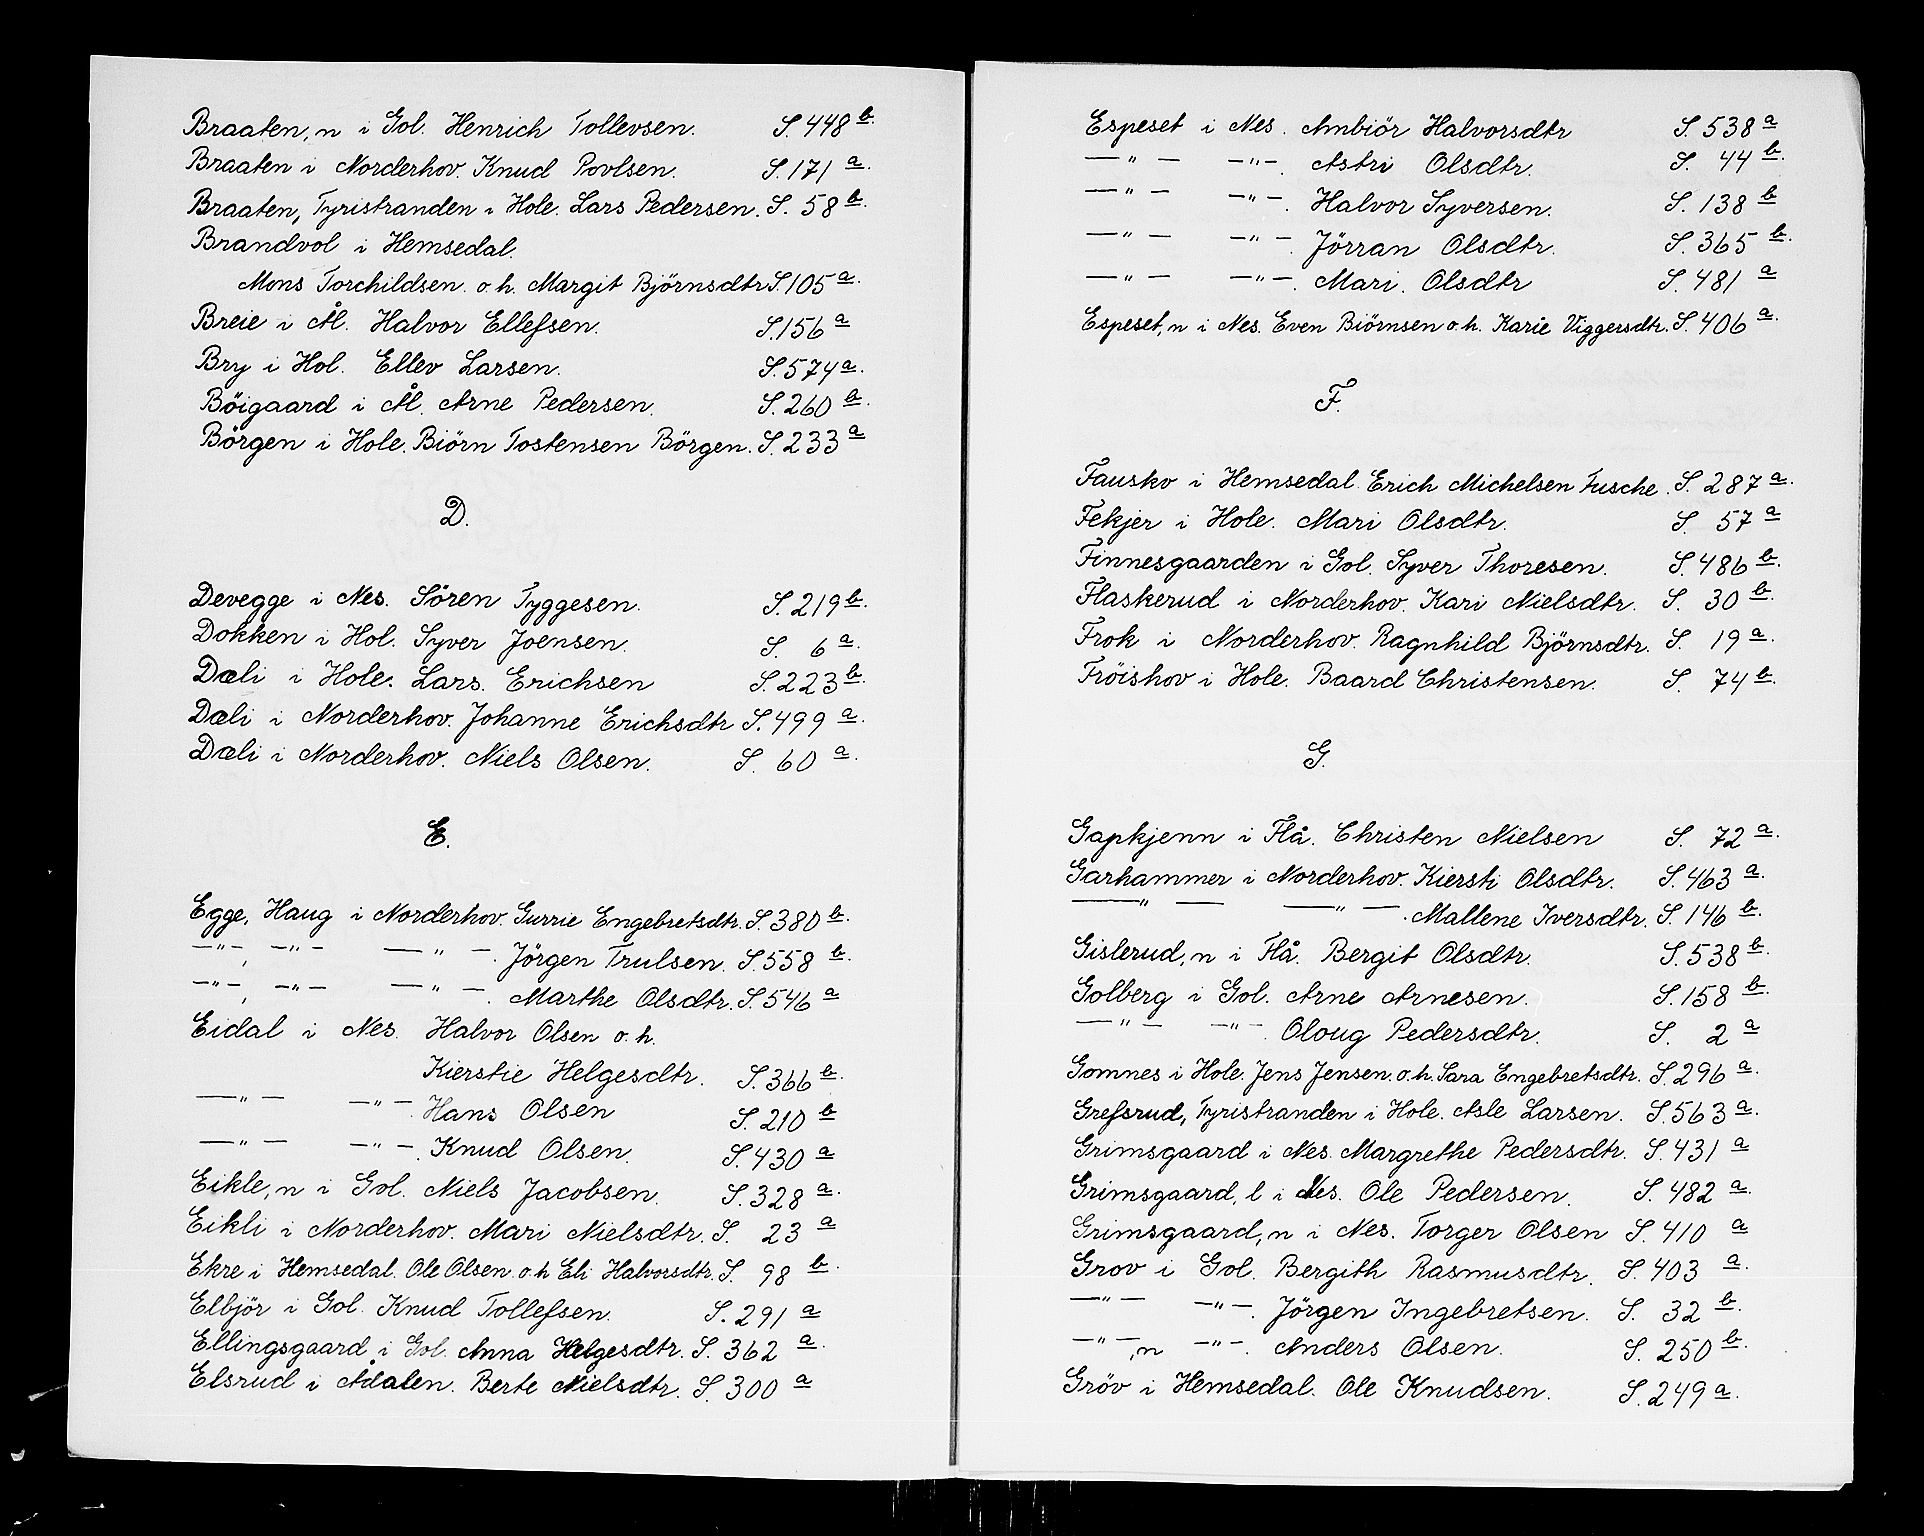 Braaten, n i Gol. Henrich Tollevsen. S. 448 b.
Braaten i Norderhov. Knud Povlsen. S. 171 a.
Braaten, Tyristranden i Hole. Lars Pedersen. S. 58 b.
Brandvol i Hemsedal.
Mons Torchildsen o. h. Margit Björnsdtr S. 105 a.
Breie i Ål. Halvor Ellefsen. S. 156 a
Bry i Hol. Ellev Larsen. S. 574 a.
Böigaard i Ål. Arne Pedersen. S. 260 b.
Börgen i Hole. Biörn Tostensen Börgen. S. 233 a
D.
Devegge i Nes. Sören Tyggesen. S. 219 b.
Dokken i Hol. Syver Joensen. S. 6 a.
Dæli i Hole. Lars. Erichsen S. 223 b.
Dæli i Norderhov. Johanne Erichsdtr S. 499 a.
Dæli i Norderhov. Niels Olsen. S. 60 a.
E.
Egge, Haug i Norderhov. Gurrie Engebretsdtr. S. 380 b.
—"—, —"— —"—. Jörgen Trulsen. S. 558 b.
—"—, —"— —"—. Marthe Olsdtr. S. 546 a
Eidal i Nes. Halvor Olsen o. h.
Kierstie Helgesdtr. S. 366 b.
—"— —"—. Hans Olsen S. 210 b
—"— —"—. Knud Olsen. S. 430 a
Eikle, n i Gol. Niels Jacobsen. S. 328 a.
Eikli i Norderhov. Mari Nielsdtr. S. 23 a
Ekre i Hemsedal. Ole Olsen o. h Eli Halvorsdtr. S. 98 b.
Elbjör i Gol. Knud Tollefsen. S. 291 a
Ellingsgaard i Gol. Anna Helgesdtr. S. 362 a.
Elsrud i Ådalen. Berte Nielsdtr. S. 300 a
Espeset i Nes. Ambiör Halvorsdtr S. 538 a
—"— —"—. Astri Olsdtr. S. 44 b.
—"— —"—. Halvor Syversen. S. 138 b
—"— —"—. Jörran Olsdtr. S. 365 b.
—"— —"—. Mari. Olsdtr S. 481 a
Espeset, n i Nes. Even Biörnsen o. h. Karie Viggersdtr. S. 406 a.
F.
Fausko i Hemsedal. Erich Michelsen Fusche. S. 287 a.
Fekjer i Hole. Mari Olsdtr. S. 57 a
Finnesgaarden i Gol. Syver Thoresen. S. 486 b.
Flaskerud i Norderhov. Kari Nielsdtr. S. 30 b.
Frok i Norderhov. Ragnhild Björnsdtr. S. 19 a.
Fröishov i Hole. Baard Christensen. S. 74 b.
G.
Gapkjenn i Flå. Christen Nielsen S. 72 a.
Garhammer i Norderhov. Kiersti Olsdtr. S. 463 a.
—"— —"—. Mallene Iversdtr. S. 146 b.
Gislerud, n i Flå. Bergit Olsdtr. S. 538 b.
Golberg i Gol. Arne Arnesen. S. 158 b.
—"— —"—. Oloug Pedersdtr. S. 2 a
Gomnes i Hole. Jens Jensen. o. h. Sara Engebretsdtr. S. 296 a.
Grefsrud, Tyristranden i Hole. Asle Larsen. S. 563 a.
Grimsgaard i Nes. Margrethe Pedersdtr. S. 431 a
Grimsgaard, l i Nes. Ole Pedersen. S. 482 a.
Grimsgaard, n i Nes. Torger Olsen S. 410 a
Grov i Gol. Bergith Rasmusdtr. S. 403 a.
—"— —"—. Jörgen Ingebretsen. S. 32 b.
—"—, n —"—. Anders Olsen. S. 250 b.
Gröv i Hemsedal. Ole Knudsen. S. 249 a.